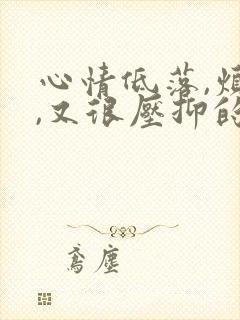 心情低落,烦
,又很壓抑的
鸢塵